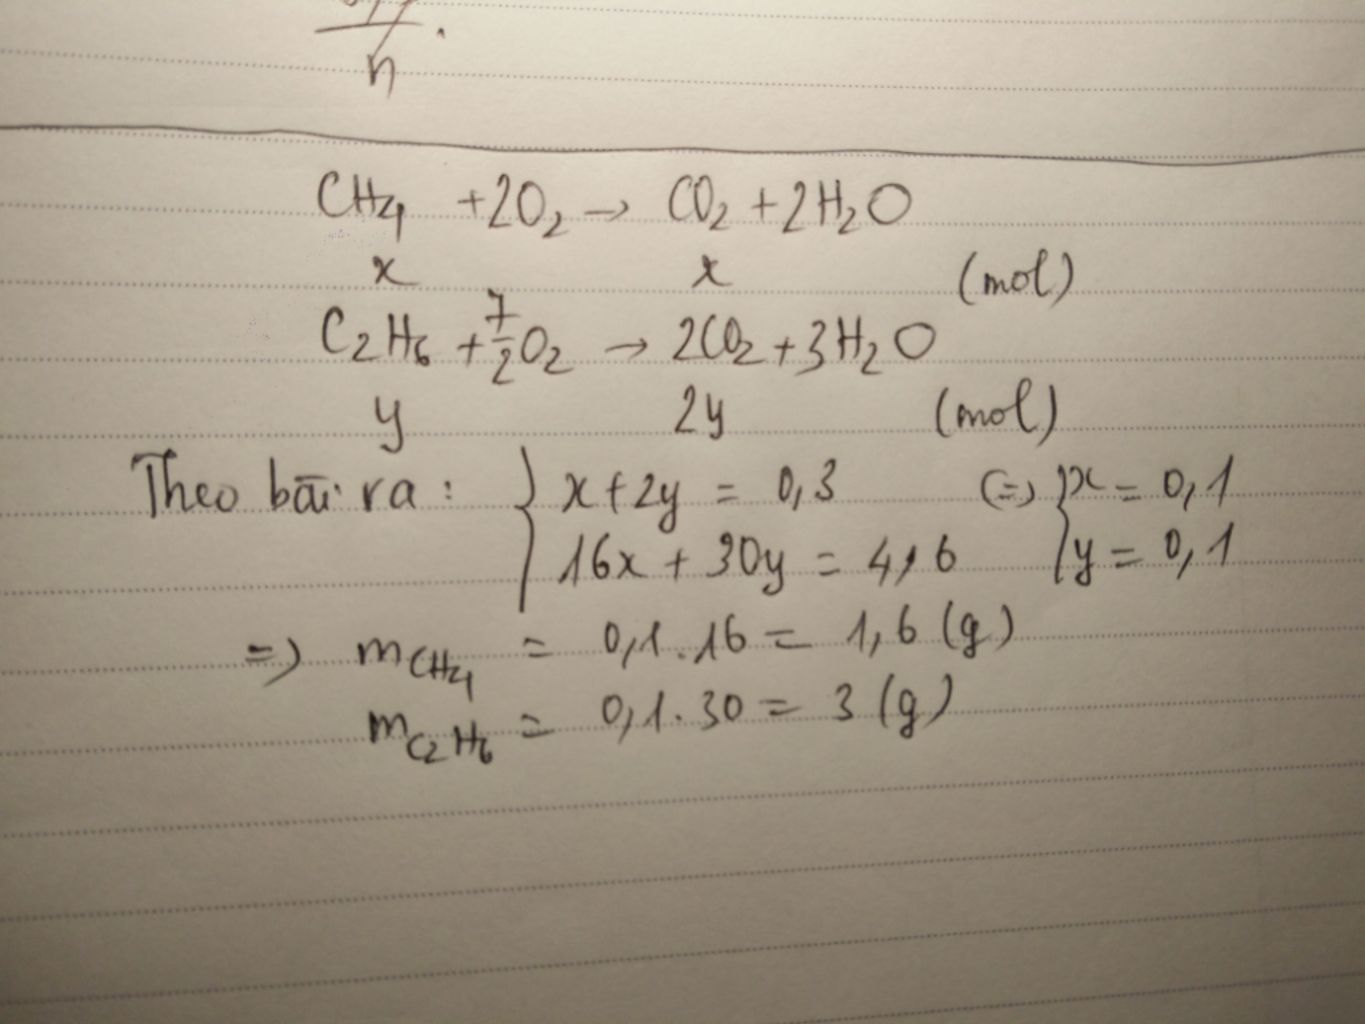 n
CH4 +2O2 → CO2 + 2H2O
x x (mol)
C2H6 + 7/2 O2 → 2CO2 + 3H2O
y 2y (mol)
Theo bài ra: { x + 2y = 0,3 (=) { x = 0,1
16x + 30y = 4,6 y = 0,1
=) mCH4 = 0,1.16 = 1,6 (g)
mC2H6 = 0,1.30 = 3 (g)